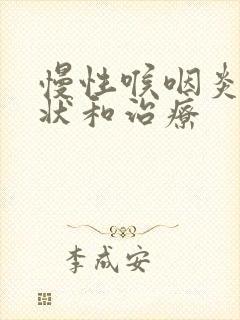 慢性喉咽炎
状和治疗
李成安